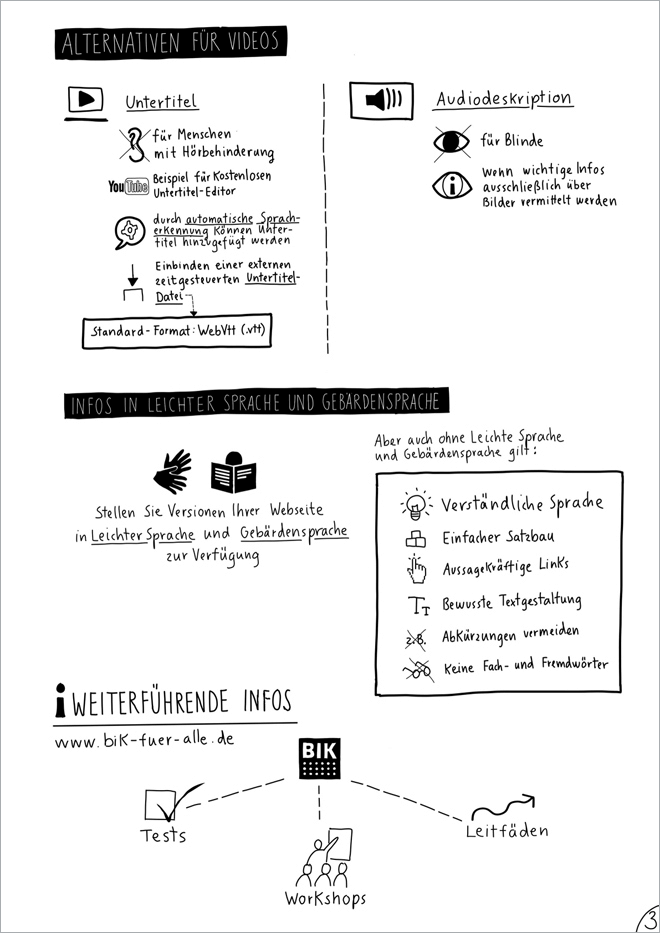 ALTERNATIVEN FÜR VIDEOS
Untertitel
für Menschen
mit Hörbehinderung
YouTube
Beispiel für Kostenlosen
Untertitel-Editor
durch automatische Sprach-
erkennung können Unter-
titel hinzugefügt werden
Einbinden einer externen
zeitgesteuerten Untertitel-
Datei
Standard-Format: WebVtt (.vtt)
Audiodeskription
für Blinde
Wenn wichtige Infos
ausschließlich über
Bilder vermittelt werden
INFOS IN LEICHTER SPRACHE UND GEBÄRDENSPRACHE
Stellen Sie Versionen Ihrer Webseite
in Leichter Sprache und Gebärdensprache
zur Verfügung
Aber auch ohne Leichte Sprache
und Gebärdensprache gilt:
Verständliche Sprache
Einfacher Satzbau
Aussagekräftige Links
TT Bewusste Textgestaltung
z.B. Abkürzungen vermeiden
Keine Fach- und Fremdwörter
i WEITERFÜHRENDE INFOS
www.bik-fuer-alle.de
BIK
Tests
Workshops
Leitfäden
3